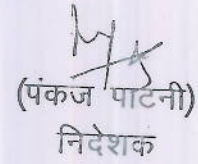 (पंकज पाटनी)
निदेशक